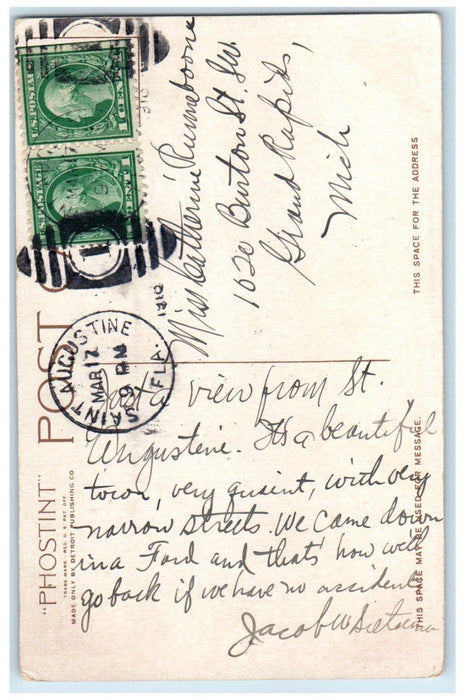 U.S. POSTAGE
1 CENT 1
U.S. POSTAGE
1 CENT 1
1910
1910
SAINT AUGUSTINE
MAR 17
9 PM
FLA.
POST
"PHOSTINT"
TRADE MARK REG. U.S. PAT. OFF.
MADE ONLY BY DETROIT PUBLISHING CO
Miss Catherine
1020 Burton St. SW.
Grand Rapids,
Mich
THIS SPACE FOR THE ADDRESS
Just a view from St.
Augustine. It's a beautiful
town, very quaint, with very
narrow streets. We came down
in a Ford and that's how we'll
go back if we have no accidents
Jacob W
THIS SPACE MAY BE USED FOR MESSAGE.